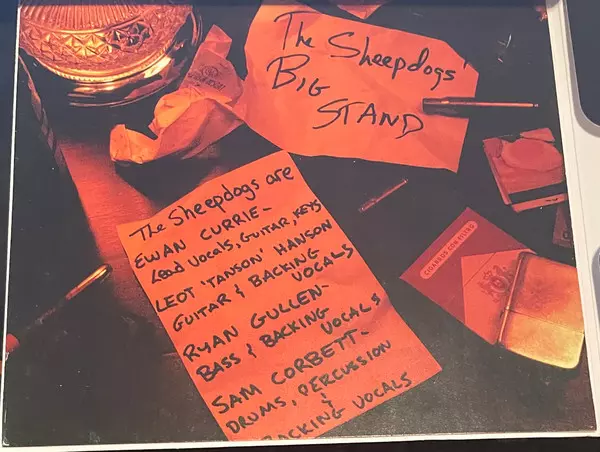 The Sheepdogs'
BIG
STAND
The Sheepdogs are
EWAN CURRIE-
Lead Vocals, Guitar, Keys
LEOT 'TANSON' HANSON
GUITAR & BACKING
VOCALS
RYAN GULLEN-
BASS & BACKING VOCALS
SAM CORBETT-
DRUMS, PERCUSSION
&
BACKING VOCALS
CIGARROS CON FILTRO